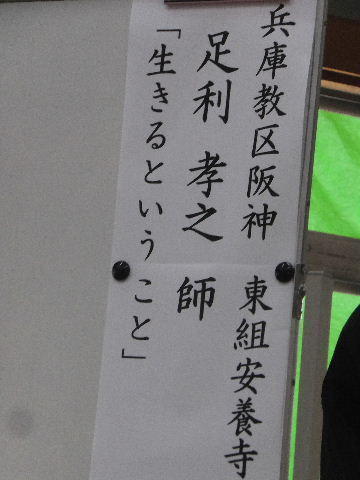 兵庫教区阪神 東組安養寺
足利 孝之 師
「生きるということ」